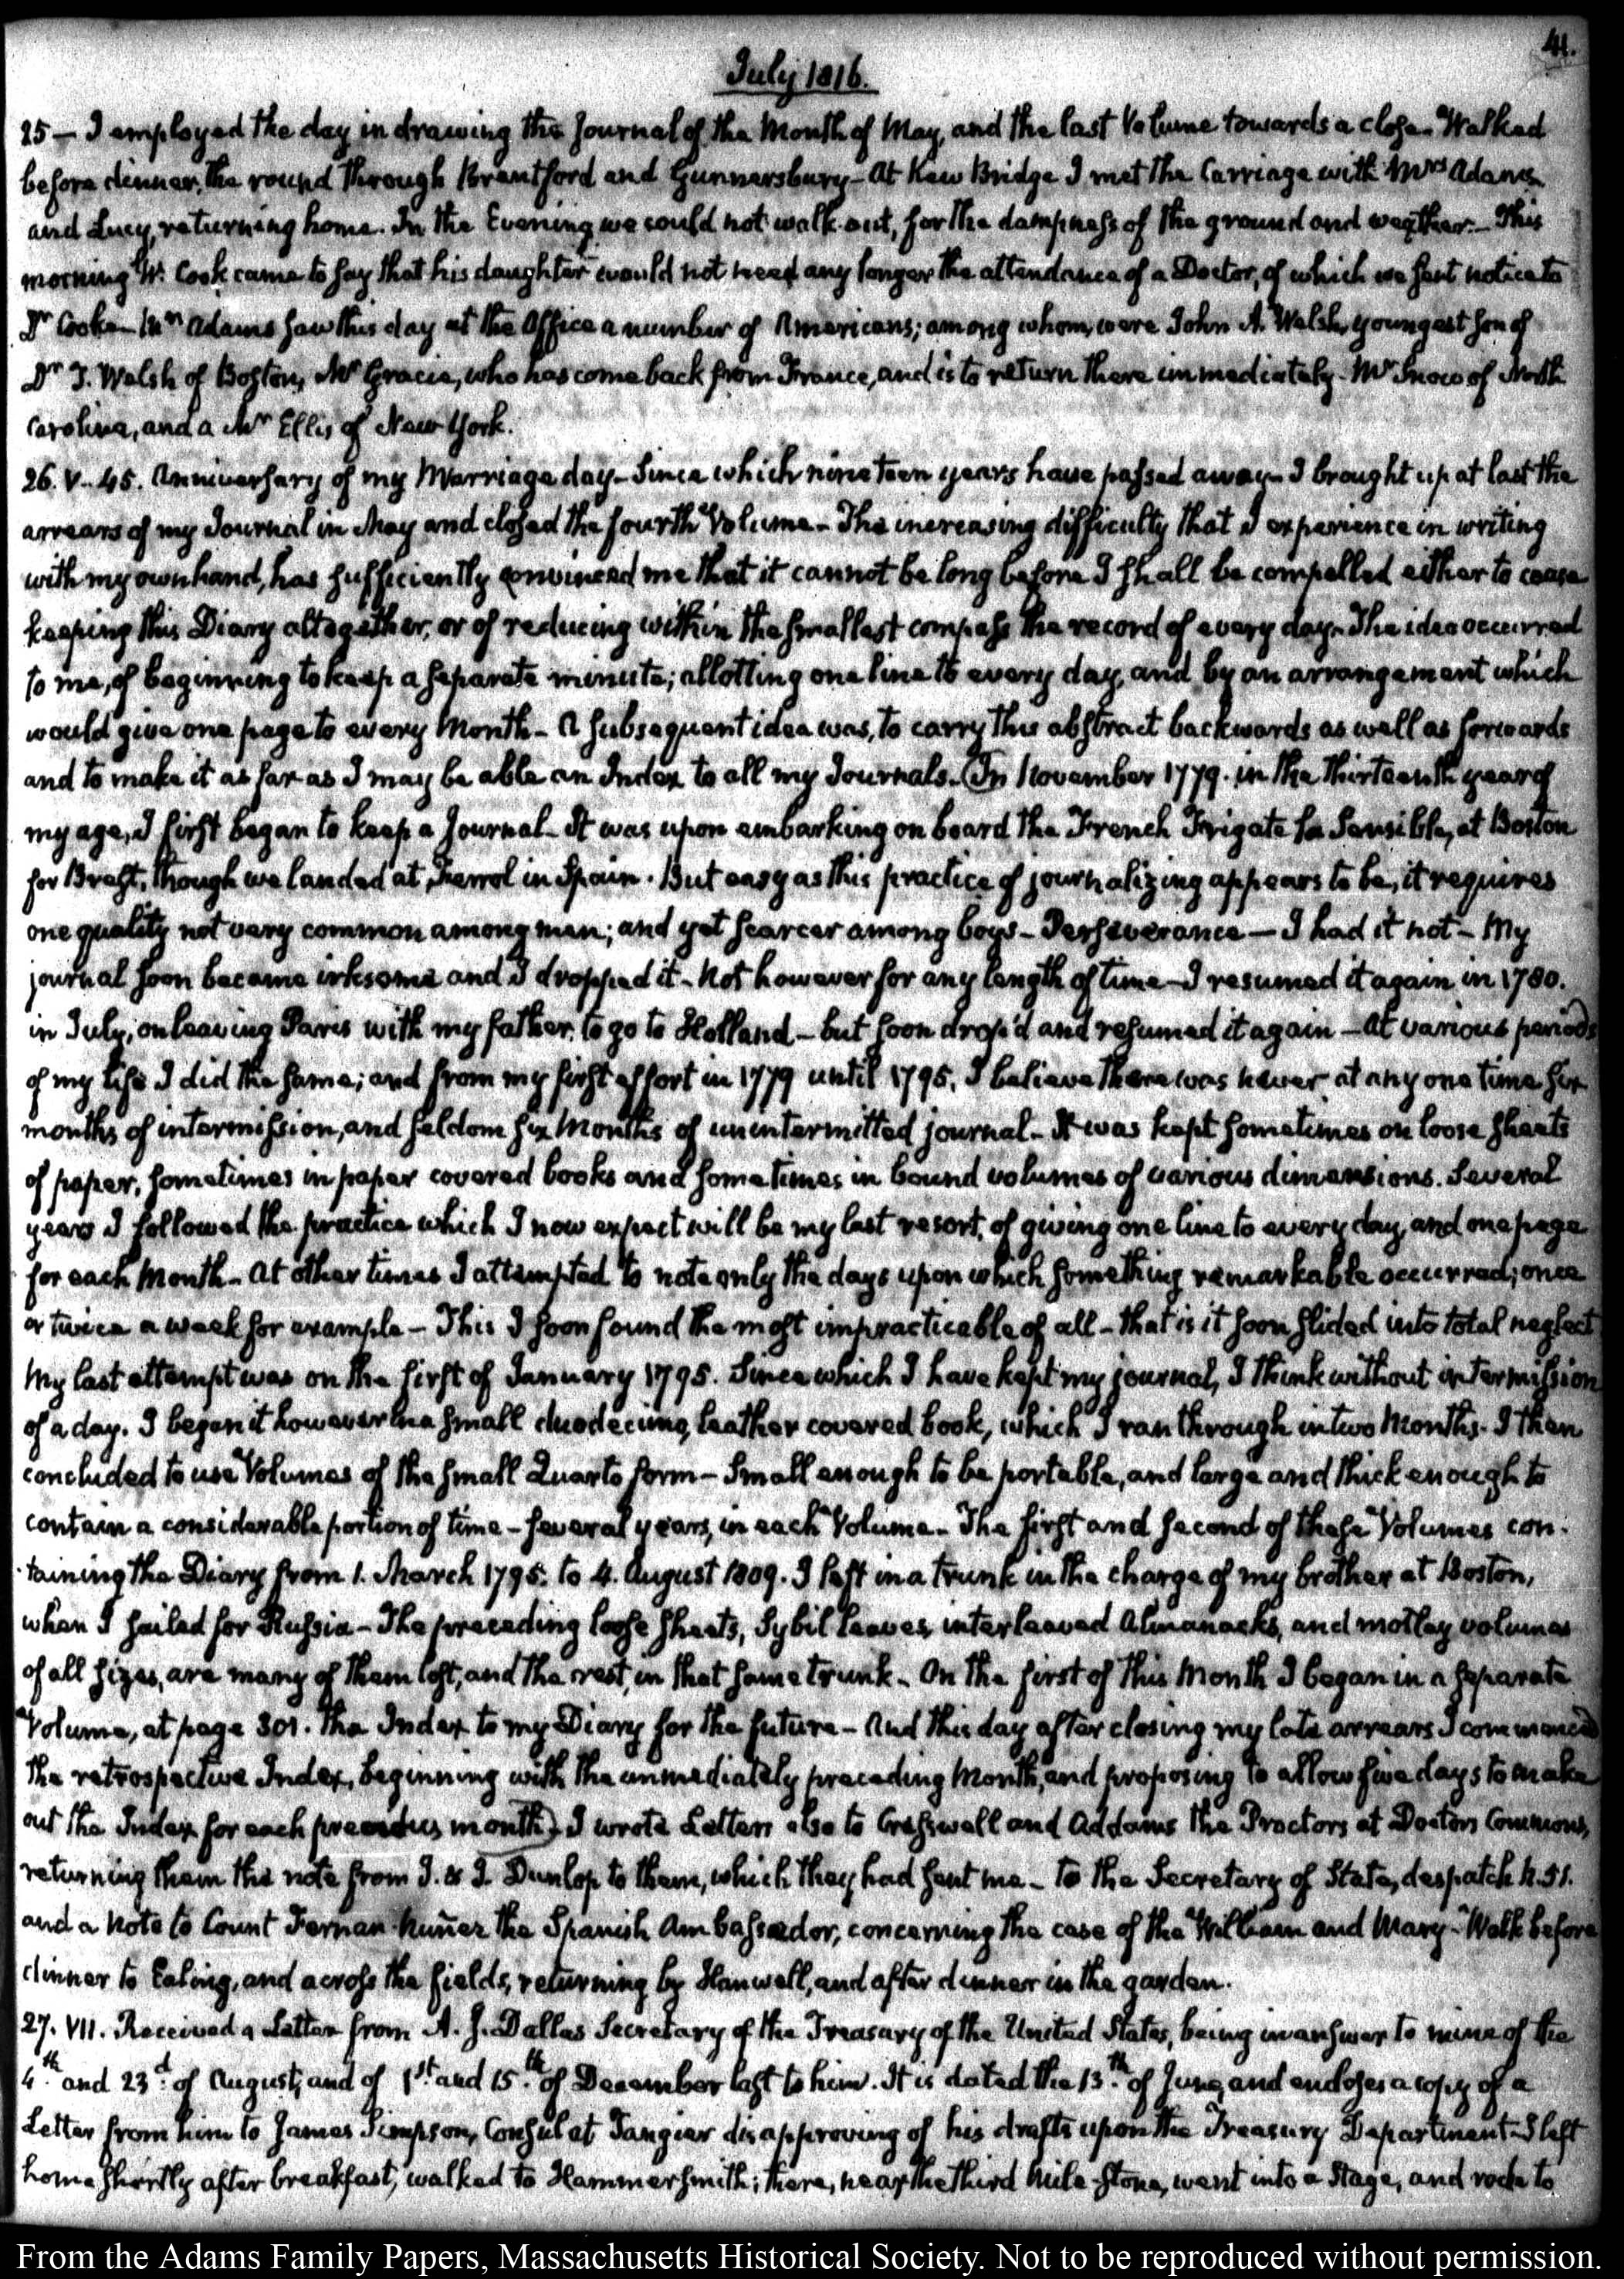 41.
July 1816.
25 — I employed the day in drawing the Journal of the Month of May, and the last Volume towards a close. Walked
before dinner, the round through Brentford and Gunnersbury - At Kew Bridge I met the Carriage with Mrs Adams
and Lucy, returning home. In the Evening we could not walk out, for the dampness of the ground and weather. - This
morning Mr. Cook came to say that his daughter would not need any longer the attendance of a Doctor, of which we sent notice to
Dr Cooke - Mrs Adams saw this day at the Office a number of Americans; among whom, were John A. Welsh, youngest son of
Dr T. Welsh of Boston, Mr Gracie, who has come back from France, and is to return there immediately - Mr Snow of North
Carolina, and a Mr Ellis of New York.
26. V. 45. Anniversary of my Marriage day - Since which nineteen years have passed away - I brought up at last the
arrears of my Journal in May and closed the fourth Volume - The increasing difficulty that I experience in writing
with my own hand, has sufficiently convinced me that it cannot be long before I shall be compelled either to cease
keeping this Diary altogether, or of reducing within the smallest compass the record of every day. The idea occurred
to me, of beginning to keep a separate minute; allotting one line to every day, and by an arrangement which
would give one page to every Month - A subsequent idea was, to carry this abstract backwards as well as forwards
and to make it as far as I may be able an Index to all my Journals. (In November 1779. in the thirteenth year of
my age, I first began to keep a Journal - It was upon embarking on board the French Frigate la Sensible, at Boston
for Brest, though we landed at Ferrol in Spain. But easy as this practice of journalizing appears to be, it requires
one quality not very common among men; and yet scarcer among boys - Perseverance — I had it not - My
journal soon became irksome and I dropped it - Not however for any length of time - I resumed it again in 1780.
in July, on leaving Paris with my father, to go to Holland - but soon drop'd and resumed it again — At various periods
of my life I did the same; and from my first effort in 1779 until 1795, I believe there was never at any one time six
months of intermission, and seldom six Months of unintermitted journal - It was kept sometimes on loose sheets
of paper, sometimes in paper covered books and sometimes in bound volumes of various dimensions. Several
years I followed the practice which I now expect will be my last resort, of giving one line to every day, and one page
for each Month - At other times I attempted to note only the days upon which something remarkable occurred; once
or twice a week for example - This I soon found the most impracticable of all - that is it soon slided into total neglect
My last attempt was on the first of January 1795. Since which I have kept my journal, I think without intermission
of a day. I began it however in a small duodecimo, leather covered book, which I ran through in two Months. I then
concluded to use Volumes of the small Quarto form - Small enough to be portable, and large and thick enough to
contain a considerable portion of time - several years, in each Volume - The first and second of these Volumes con-
taining the Diary from 1. March 1795. to 4. August 1809. I left in a trunk in the charge of my brother at Boston,
when I sailed for Russia - The preceding loose sheets, Sybil leaves, interleaved Almanacks, and motley volumes
of all sizes, are many of them lost, and the rest, in that same trunk - On the first of this Month I began in a separate
Volume, at page 301. the Index to my Diary for the future - And this day after closing my late arrears I commenced
the retrospective Index, beginning with the immediately preceding Month, and proposing to allow five days to make
out the Index for each previous month) I wrote Letters also to Cresswell and Addams the Proctors at Doctors Commons,
returning them the note from J. & J. Dunlop to them, which they had sent me - to the Secretary of State, despatch N. 51.
and a Note to Count Fernan-Nuñez the Spanish Ambassador, concerning the case of the William and Mary - Walk before
dinner to Ealing, and across the fields, returning by Hanwell, and after dinner in the garden.
27. VII. Received a Letter from A. J. Dallas Secretary of the Treasury of the United States, being in answer to mine of the
4th. and 23d. of August, and of 1st. and 15th. of December last to him. It is dated the 13th. of June, and encloses a copy of a
Letter from him to James Simpson, Consul at Tangier disapproving of his drafts upon the Treasury Department - I left
home shortly after breakfast, walked to Hammersmith; there, near the third Mile-Stone, went into a Stage, and rode to
From the Adams Family Papers, Massachusetts Historical Society. Not to be reproduced without permission.